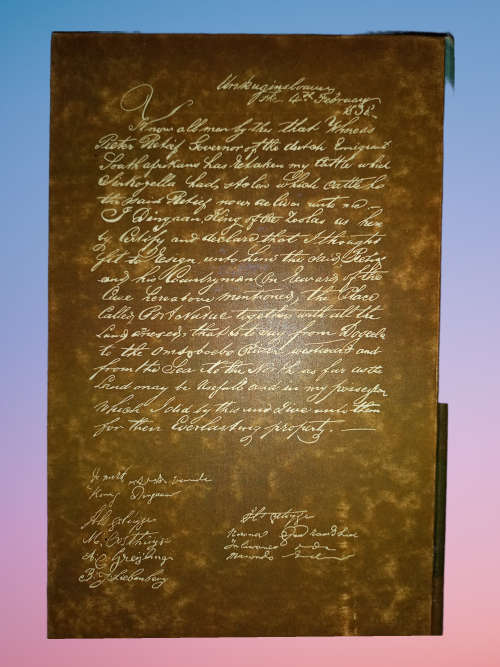 Unkuginsloave
the 4th February
1838
Know all men by this that Whereas
Pieter Retief Governor of the dutch Emigrant
South afrikans has Retaken my Cattle which
Sinkoyella had stolen which Cattle he
the said Retief now deliver unto me —
I Dingaan, King of the Zoolas as here
by Certify and declare that I thought
fit to Resign unto him the said Retief
and his Countrymen (in Reward of the
Case hereabove mentioned) the Place
Called Port Natal together with all the
Land annexed, that is to say from Dogeela
to the Omsoboebo River westward and
from the Sea to the North as far as the
Land may be Usefull and in my possession
Which I did by this and Give unto them
for their Everlasting property. —
de merk
King Dingaan
M. Oosthuyse
A. C. Greyling
B. J. Liebenberg